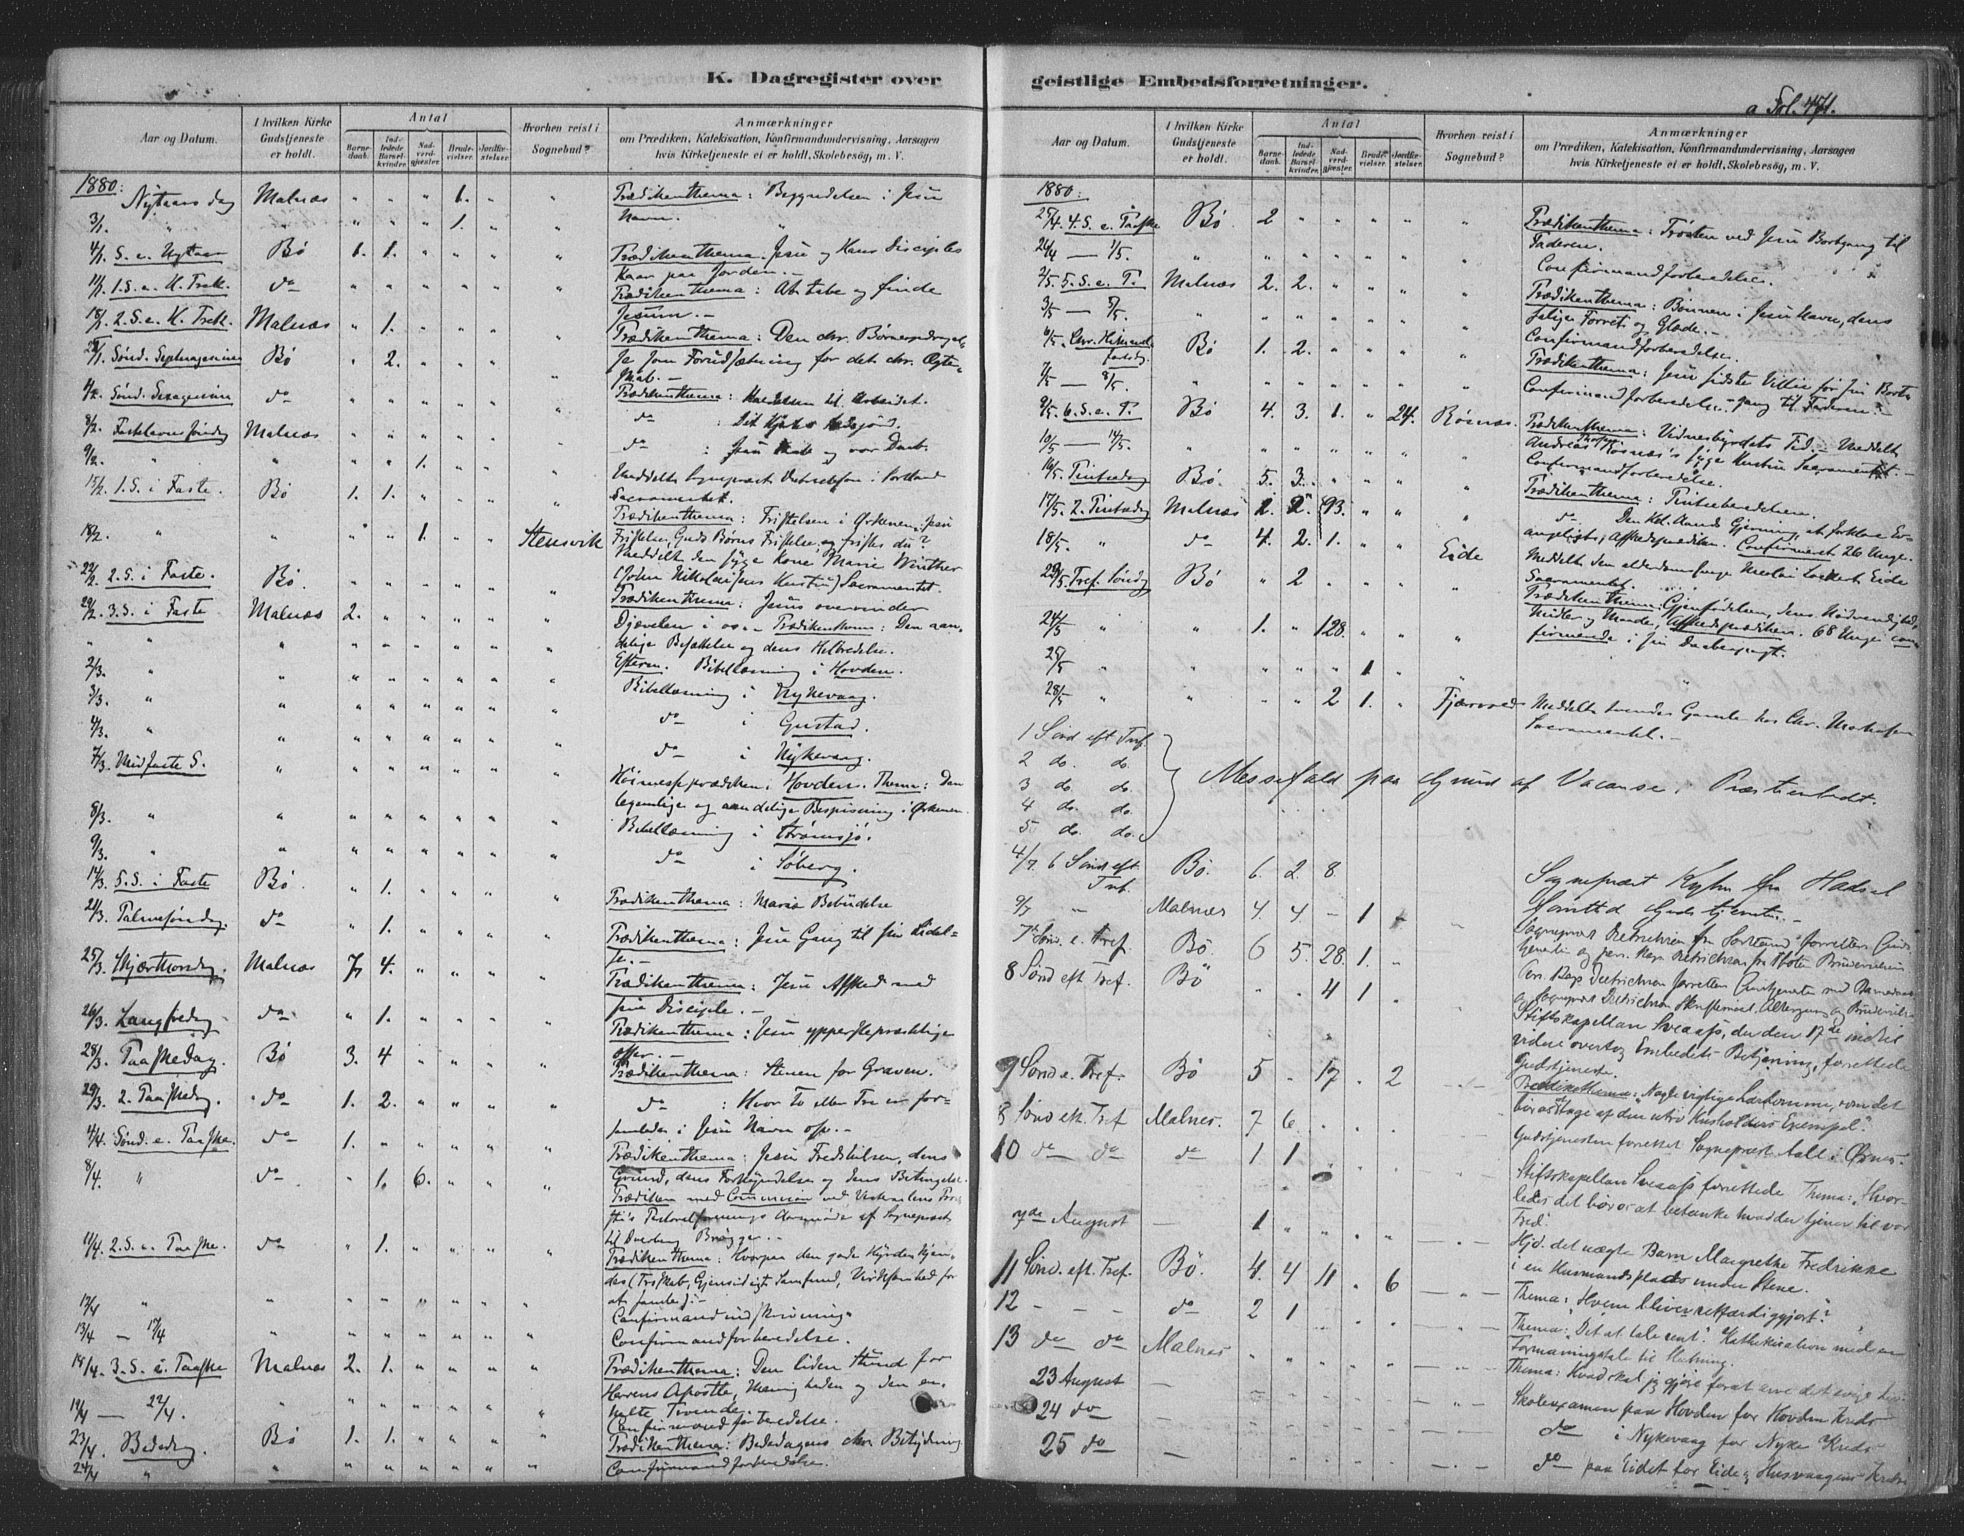 K. Dagregister over
Aar og Datum.
I hvilken Kirke Gudstjeneste er holdt.
Antal
Barnedaab.
Indledede Barselkvinder.
Nadverdgjæster.
Brudevielser.
Jordfæstelser.
Hvorhen reist i Sognebud?
Anmærkninger
om Prædiken, Katekisation, Konfirmandundervisning, Aarsagen
hvis Kirketjeneste ei er holdt, Skolebesög, m. V.
1880:
Nytaarsdag Malnæs " " " 1. " " Prædikenthema: Begyndelsen i Jesu
Navn.
3/1. " " " " 1. "
4/1. S. e. Nytaar Bö 1. 1. " " " " Prædikenthema: Jesu og Hans Disciples
Kaar paa Jorden.—
11/1. 1. S. e. H. Trek. do " " " " " Prædikenthema: At tabe og finde
Jesum.—
18/1. 2. S. e. H. Trek. Malnæs " 1. " " " Prædikenthema: Den chr. Børneopdragel-
se som Forudsætning for det chr. Ægte-
skab.—
Sönd. Septuagesima Bö " 2. " " "
Sönd. Sexagesima do " " " " Prædikenthema: Kaldelsen til Arbeidet.
8/2. Fastelavns söndag Malnæs " " " " do : Det Hjertes Sædejord.
9/2. " " " " 1. " " do : Jesu Daab og vor Daab.
15/2. 1. S. i Faste. Bö 1. 1. " " " Meddelt Sognepræst Dietrichson i Sortland
Sacramentet.
Prædikenthema: Fristelsen i Ørkenen: Jesu
18/2. " " " " 1. " " Steensvik Fristelse, Guds Børns Fristelse og fristes du?
Meddelt den syge Kone Marie Winther
(John Nikolai Jens Hustru) Sacramentet.
22/2. 2. S. i Faste. Bö. " " " " " Prædikenthema: Jesus overvinder
29/2. 3. S. i Faste Malnæs 2. " " " " Djævelen i os.— Prædikenthema: Den aan-
delige Besættelse og dens Helbredelse.
Efterm. Bibellæsning i Hovden.
2/3. " " Bibellæsning i Nykevaag.
3/3. " " do i Gustad.
4/3. " " do i Nykvaag.
7/3. Midfaste S. " Höimesseprædiken i Hovden. Thema: Den
legemlige og aandelige Bespisning i Ørkenen.
8/3. " " Bibellæsning i Strømsjø.
9/3. " " do i Søberg.
14/3. 5. S. i Faste Bö. " 1. " " " Prædikenthema: Mariæ Bebudelse
21/3. Palmesöndag. do " 1. " " " Prædikenthema: Jesu Gang til sin Lidel-
se.—
25/3. Skjærthorsdag. Malnæs 7. 4. " " " Prædikenthema: Jesu Afsked med
sine Disciple.—
26/3. Langfredag do " 1. " " " Prædikenthema: Jesu ypperstepræstelige
offer.—
28/3. Paaskedag. Bö 3. 4 " " " Prædikenthema: Stenen for Graven.
29/3. 2. Paaskedag. do 1. 2. " " " do : Hvor To eller Tre er for-
samlede i Jesu Navn osv.—
4/4. Sönd. e. Paaske. do 1. " " " " Prædikenthema: Jesu Fredshilsen, dens
Grund, dens Forkyndelse og dens Betingelse.
8/4. " do " 1. 6. " " " Prædiken med Communion ved Vesteraalens Prov-
sti's Pastoralforenings Aarsmøde af Sognepræst
til Dverberg Brøgger.—
11/4. 2. S. e. Paaske. do " 1. " " " Prædikenthema: Hvorpaa den gode Hyrde kjen-
des (Troskab, Gjensidigt Samfund, Virksomhed for
at samle):—
12/4 " " Confirmandindskrivning
13/4 — 17/4 " Confirmandforberedelse.
18/4. 3. S. e. Paaske Malnæs 2. 1. " " " Prædikenthema: Den liden Stund for
Herrens Apostle, Menigheden og den en-
kelte Troende.
19/4 — 22/4. Confirmandforberedelse.
23/4. Bededag. Bö 1. 1. " " " Prædikenthema: Bededagens chr. Betydning
24/4 " Confirmandforberedelse.
geistlige Embedsforretninger.
a Fol. 471.
Aar og Datum.
I hvilken Kirke Gudstjeneste er holdt.
Antal
Barnedaab.
Indledede Barselkvinder.
Nadverdgjæster.
Brudevielser.
Jordfæstelser.
Hvorhen reist i Sognebud?
Anmærkninger
om Prædiken, Katekisation, Konfirmandundervisning, Aarsagen
hvis Kirketjeneste ei er holdt, Skolebesög, m. V.
1880:
25/4. 4. S. e. Paaske Bö. 2 " " " " Prædikenthema: Trøsten ved Jesu Bortgang til
Faderen.
26/4 — 1/5. " Confirmandforberedelse.
2/5. 5. S. e. P. Malnæs 2. 2. " " " Prædikenthema: Bønnen i Jesu Navn, dens
salige Forret og Glæde.—
3/5 — 5/5. " Confirmandforberedelse.
6/5. Chr. Himmelfartsdg. Bö 1. 2. " " " Prædikenthema: Jesu sidste Villie før sin Bort-
gang til Faderen.—
7/5 — 8/5. " Confirmandforberedelse
9/5. 6. S. e. P. Bö 4. 3. 1. " 24. Røsnæs. Prædikenthema: Vidnesbyrdets Tid.— Meddelt
Andreas Røsnæs's syge Hustru Sacramentet.—
10/5 — 14/5. " Confirmandforberedelse.
16/5. Pintsedag Bö. 5. 3. " " " Prædikenthema: Pintseberedelsen.
17/5. 2. Pintsedag Malnæs 2. 2. 93. " " do Den Hel. Aands Gjerning, at forklare Ev-
angeliet; Afskedsprædiken. Confirmeret 26 Unge.
18/5. " do 4. 2. 1. " " Eide Meddelt den alderdomssvage Nicolai Lockert Eide
Sacramentet.
23/5. Tref. Söndg Bö " 2 " " " Prædikenthema: Gjenfødelsen, dens Nødvendighed,
Midler og Maade; Afskedsprædiken. 68 Unge con-
firmerede i sin Daabspagt.
24/5 " " 1. " 128. " "
25/5 " " " " " 1 "
28/5 " " " " 2 1. " Fjærvold Meddelt tvende Gamle hos Chr.
Sacramentet.—
1 Sönd eft Tref.
2 do. do.
3 do do.
4 do. do.
5 do. do.
Messefald paa Grund af Vacanse i Præsteembedt.
4/7. 6 Sönd eft Tref. Bö. 6. 2 8. Sognepræst fra Hadsel
forrettede Gudstjeneste.—
9/7 — Malnæs 4. 4 — 1
7de Sönd. e. Tref. Bö 6 5. 28. 1. Sognepræst Dietrichson fra Sortland forretter Guds-
tjeneste og pers. Kap. Dietrichson fra Thoten Brudevielsen
8 Sönd eft Tref. Bö " " 4 1 Pers. Kap. Dietrichson forretter Gudstjenesten med Barnedaab
og Sognepræst Dietrichson Skriftemaal, Altergang og Brudevielse
9 Sönd e. Tref. Bö 5 " 17 . 2 Stiftskapellan Sveaass, der den 17de indtil
videre overtog Embedets Betjening, forrettede
Gudstjeneste.
8 Sönd eft. Tref Malnes. 7 6. Prædikethema: Nogle vigtige Lærdomme, som det
bør os at tage af den utro Husholders Exempel.
Gudstjenesten forrettet Sognepræst Aall i Øxnes.
10 do do do 1 1 Stiftskapellan Sveaass forrettede Thema: Hvor-
ledes det bør os at betænke hvad der tjener til vor
Fred.
7de August — 1 Hjd. det uægte Barn Margrethe Fredrikke
i en Husmandsplads under Stene.
11 Sönd. eft. Tref. Bö. 4. 4 11 . 6 Thema: Hvem bliver retfærdiggjort?
12 — — do 2 1 Thema: Det at tale sent. Kathekisation med en
Formaningstale til Slutning.
13 do do Malnes Thema: Hvad skal jeg gjøre for at arve det evige liv.
23 August — Skoleexamen paa Hovden for Hovden Kreds
24 do — do i Nykevaag for Nyke Kreds
25 do — do paa Eidet for Eide og Husvaagens Kreds